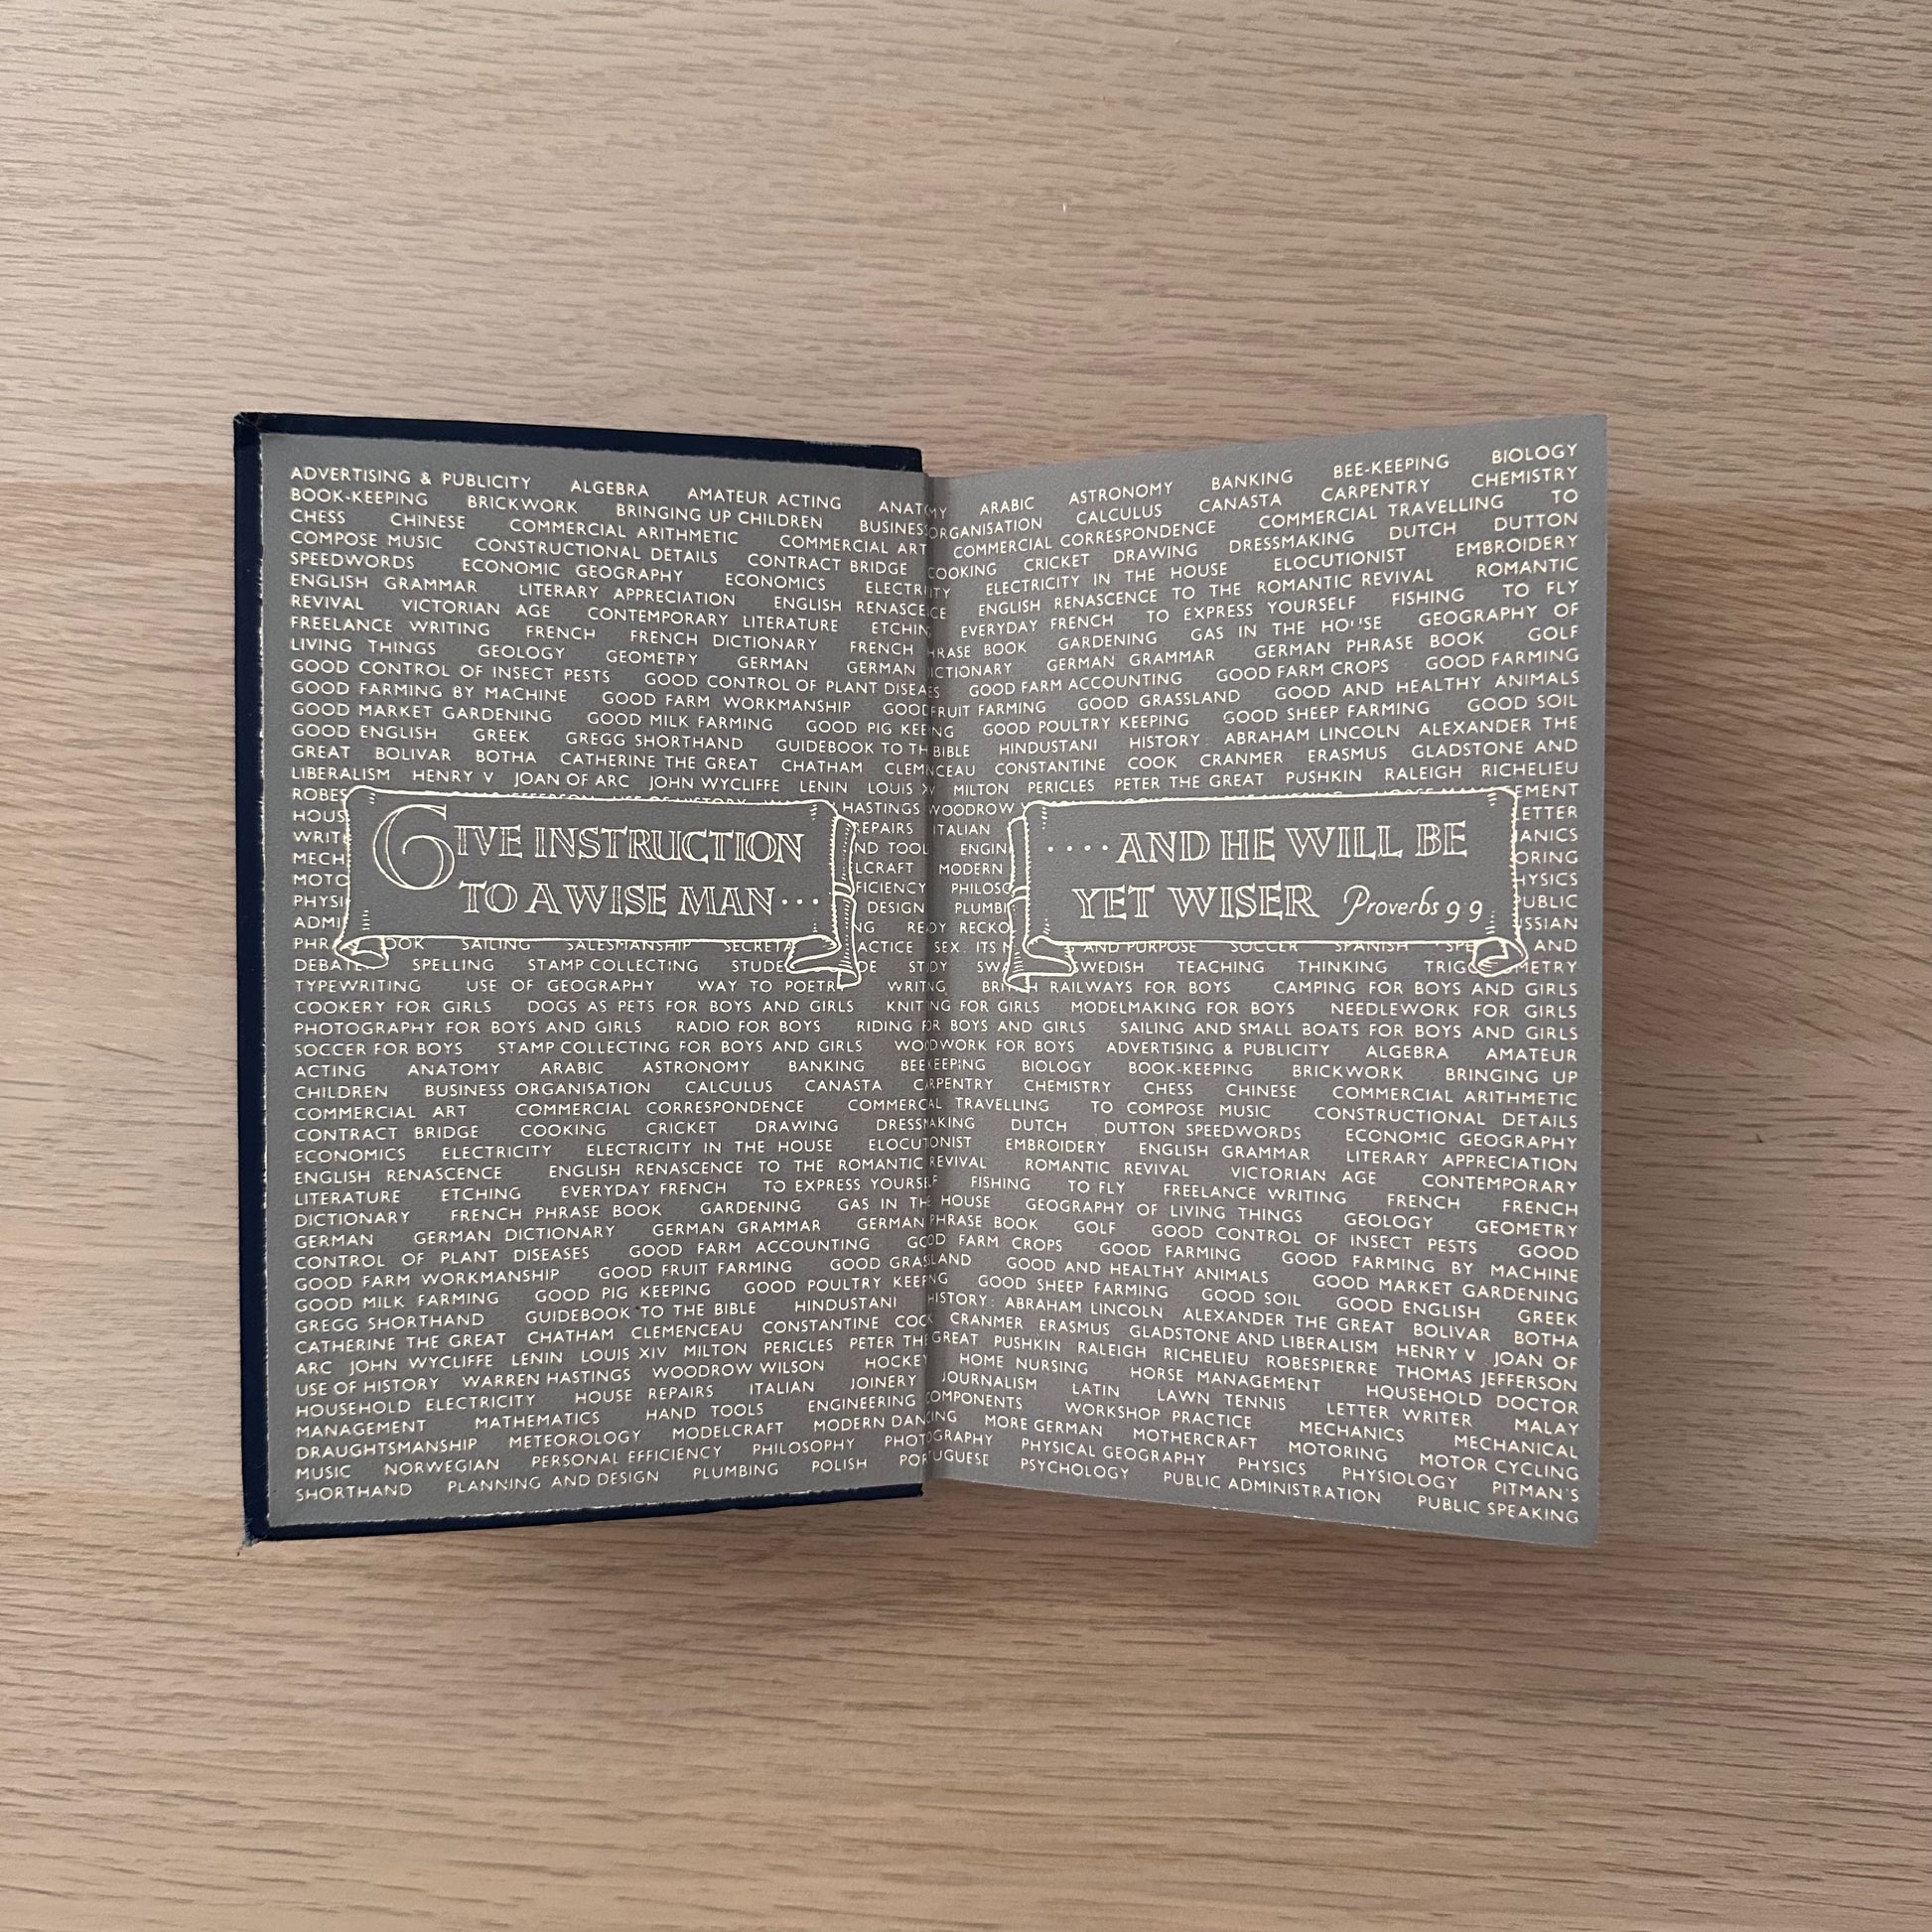 ADVERTISING & PUBLICITY ALGEBRA AMATEUR ACTING ANATOMY ARABIC ASTRONOMY BANKING BEE-KEEPING BIOLOGY
BOOK-KEEPING BRICKWORK BRINGING UP CHILDREN BUSINESS ORGANISATION CALCULUS CANASTA CARPENTRY CHEMISTRY
CHESS CHINESE COMMERCIAL ARITHMETIC COMMERCIAL ART COMMERCIAL CORRESPONDENCE COMMERCIAL TRAVELLING TO
COMPOSE MUSIC CONSTRUCTIONAL DETAILS CONTRACT BRIDGE COOKING CRICKET DRAWING DRESSMAKING DUTCH DUTTON
SPEEDWORDS ECONOMIC GEOGRAPHY ECONOMICS ELECTRICITY ELECTRICITY IN THE HOUSE ELOCUTIONIST EMBROIDERY
ENGLISH GRAMMAR LITERARY APPRECIATION ENGLISH RENASCENCE ENGLISH RENASCENCE TO THE ROMANTIC REVIVAL ROMANTIC
REVIVAL VICTORIAN AGE CONTEMPORARY LITERATURE ETCHING EVERYDAY FRENCH TO EXPRESS YOURSELF FISHING TO FLY
FREELANCE WRITING FRENCH FRENCH DICTIONARY FRENCH PHRASE BOOK GARDENING GAS IN THE HOUSE GEOGRAPHY OF
LIVING THINGS GEOLOGY GEOMETRY GERMAN GERMAN DICTIONARY GERMAN GRAMMAR GERMAN PHRASE BOOK GOLF
GOOD CONTROL OF INSECT PESTS GOOD CONTROL OF PLANT DISEASES GOOD FARM ACCOUNTING GOOD FARM CROPS GOOD FARMING
GOOD FARMING BY MACHINE GOOD FARM WORKMANSHIP GOOD FRUIT FARMING GOOD GRASSLAND GOOD AND HEALTHY ANIMALS
GOOD MARKET GARDENING GOOD MILK FARMING GOOD PIG KEEPING GOOD POULTRY KEEPING GOOD SHEEP FARMING GOOD SOIL
GOOD ENGLISH GREEK GREGG SHORTHAND GUIDEBOOK TO THE BIBLE HINDUSTANI HISTORY: ABRAHAM LINCOLN ALEXANDER THE
GREAT BOLIVAR BOTHA CATHERINE THE GREAT CHATHAM CLEMENCEAU CONSTANTINE COOK CRANMER ERASMUS GLADSTONE AND
LIBERALISM HENRY V JOAN OF ARC JOHN WYCLIFFE LENIN LOUIS XIV MILTON PERICLES PETER THE GREAT PUSHKIN RALEIGH RICHELIEU
HASTINGS WOODROW
REPAIRS ITALIAN
GIVE INSTRUCTION
TO A WISE MAN...
....AND HE WILL BE
YET WISER Proverbs 9·9.
SAILING SALESMANSHIP AND PURPOSE SOCCER SPANISH AND
SPELLING STAMP COLLECTING STUDY SWEDISH TEACHING THINKING
TYPEWRITING USE OF GEOGRAPHY WAY TO POETRY WRITING BRITISH RAILWAYS FOR BOYS CAMPING FOR BOYS AND GIRLS
COOKERY FOR GIRLS DOGS AS PETS FOR BOYS AND GIRLS KNITTING FOR GIRLS MODELMAKING FOR BOYS NEEDLEWORK FOR GIRLS
PHOTOGRAPHY FOR BOYS AND GIRLS RADIO FOR BOYS RIDING FOR BOYS AND GIRLS SAILING AND SMALL BOATS FOR BOYS AND GIRLS
SOCCER FOR BOYS STAMP COLLECTING FOR BOYS AND GIRLS WOODWORK FOR BOYS ADVERTISING & PUBLICITY ALGEBRA AMATEUR
ACTING ANATOMY ARABIC ASTRONOMY BANKING BEEKEEPING BIOLOGY BOOK-KEEPING BRICKWORK BRINGING UP
CHILDREN BUSINESS ORGANISATION CALCULUS CANASTA CARPENTRY CHEMISTRY CHESS CHINESE COMMERCIAL ARITHMETIC
COMMERCIAL ART COMMERCIAL CORRESPONDENCE COMMERCIAL TRAVELLING TO COMPOSE MUSIC CONSTRUCTIONAL DETAILS
CONTRACT BRIDGE COOKING CRICKET DRAWING DRESSMAKING DUTCH DUTTON SPEEDWORDS ECONOMIC GEOGRAPHY
ECONOMICS ELECTRICITY ELECTRICITY IN THE HOUSE ELOCUTIONIST EMBROIDERY ENGLISH GRAMMAR LITERARY APPRECIATION
ENGLISH RENASCENCE ENGLISH RENASCENCE TO THE ROMANTIC REVIVAL ROMANTIC REVIVAL VICTORIAN AGE CONTEMPORARY
LITERATURE ETCHING EVERYDAY FRENCH TO EXPRESS YOURSELF FISHING TO FLY FREELANCE WRITING FRENCH FRENCH
DICTIONARY FRENCH PHRASE BOOK GARDENING GAS IN THE HOUSE GEOGRAPHY OF LIVING THINGS GEOLOGY GEOMETRY
GERMAN GERMAN DICTIONARY GERMAN GRAMMAR GERMAN PHRASE BOOK GOLF GOOD CONTROL OF INSECT PESTS GOOD
CONTROL OF PLANT DISEASES GOOD FARM ACCOUNTING GOOD FARM CROPS GOOD FARMING GOOD FARMING BY MACHINE
GOOD FARM WORKMANSHIP GOOD FRUIT FARMING GOOD GRASSLAND GOOD AND HEALTHY ANIMALS GOOD MARKET GARDENING
GOOD MILK FARMING GOOD PIG KEEPING GOOD POULTRY KEEPING GOOD SHEEP FARMING GOOD SOIL GOOD ENGLISH GREEK
GREGG SHORTHAND GUIDEBOOK TO THE BIBLE HINDUSTANI HISTORY: ABRAHAM LINCOLN ALEXANDER THE GREAT BOLIVAR BOTHA
CATHERINE THE GREAT CHATHAM CLEMENCEAU CONSTANTINE COOK CRANMER ERASMUS GLADSTONE AND LIBERALISM HENRY V JOAN OF
ARC JOHN WYCLIFFE LENIN LOUIS XIV MILTON PERICLES PETER THE GREAT PUSHKIN RALEIGH RICHELIEU ROBESPIERRE THOMAS JEFFERSON
USE OF HISTORY WARREN HASTINGS WOODROW WILSON HOCKEY HOME NURSING HORSE MANAGEMENT HOUSEHOLD DOCTOR
HOUSEHOLD ELECTRICITY HOUSE REPAIRS ITALIAN JOINERY JOURNALISM LATIN LAWN TENNIS LETTER WRITER MALAY
MANAGEMENT MATHEMATICS HAND TOOLS ENGINEERING COMPONENTS WORKSHOP PRACTICE MECHANICS MECHANICAL
DRAUGHTSMANSHIP METEOROLOGY MODELCRAFT MODERN DANCING MORE GERMAN MOTHERCRAFT MOTORING MOTOR CYCLING
MUSIC NORWEGIAN PERSONAL EFFICIENCY PHILOSOPHY PHOTOGRAPHY PHYSICAL GEOGRAPHY PHYSICS PHYSIOLOGY PITMAN'S
SHORTHAND PLANNING AND DESIGN PLUMBING POLISH PORTUGUESE PSYCHOLOGY PUBLIC ADMINISTRATION PUBLIC SPEAKING